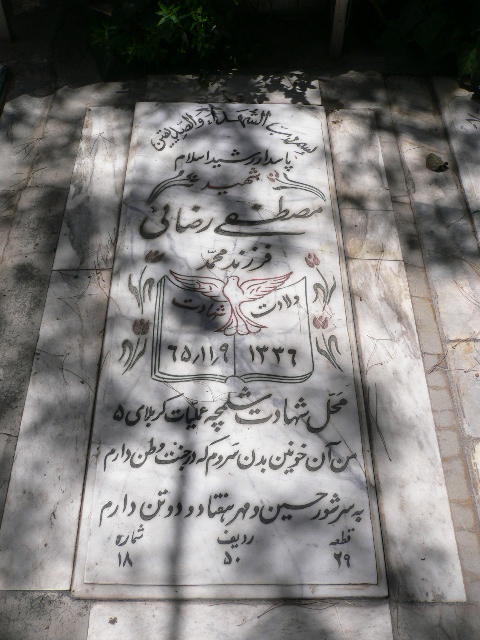 بسم رب الشهداء والصدیقین
پاسدار رشید اسلام
شهید
مصطفی رضائی
فرزند محمد
ولادت شهادت
۱۳۳۶ ۶۵/۱۱/۹
محل شهادت شلمچه عملیات کربلای ۵
من آن خونین بدن سروم که در جنت وطن دارم
به سر شور حسین و مهر هفتاد و دو تن دارم
قطعه ردیف شماره
۲۹ ۵۰ ۱۸